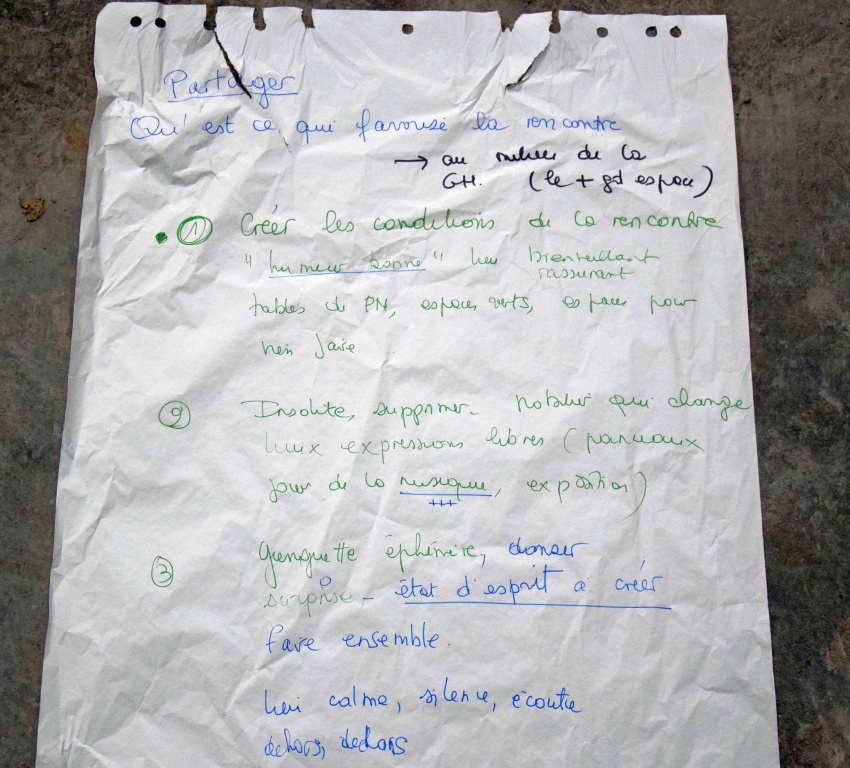 Partager
Qu'est ce qui favorise la rencontre
→ au milieu de la
GH. (le + gd espace)
① Créer les conditions de la rencontre
"humeur bonne" lieu bienveillant
rassurant
tables de PN, espaces verts, espaces pour
rien faire
② Insolite, supprimer. mobilier qui change
lieux expressions libres (panneaux
jour de la musique, exposition)
+++
③ Guinguette éphémère, danser
surprise - état d'esprit à créer
faire ensemble.
lieu calme, silence, écoute
dehors, dehors